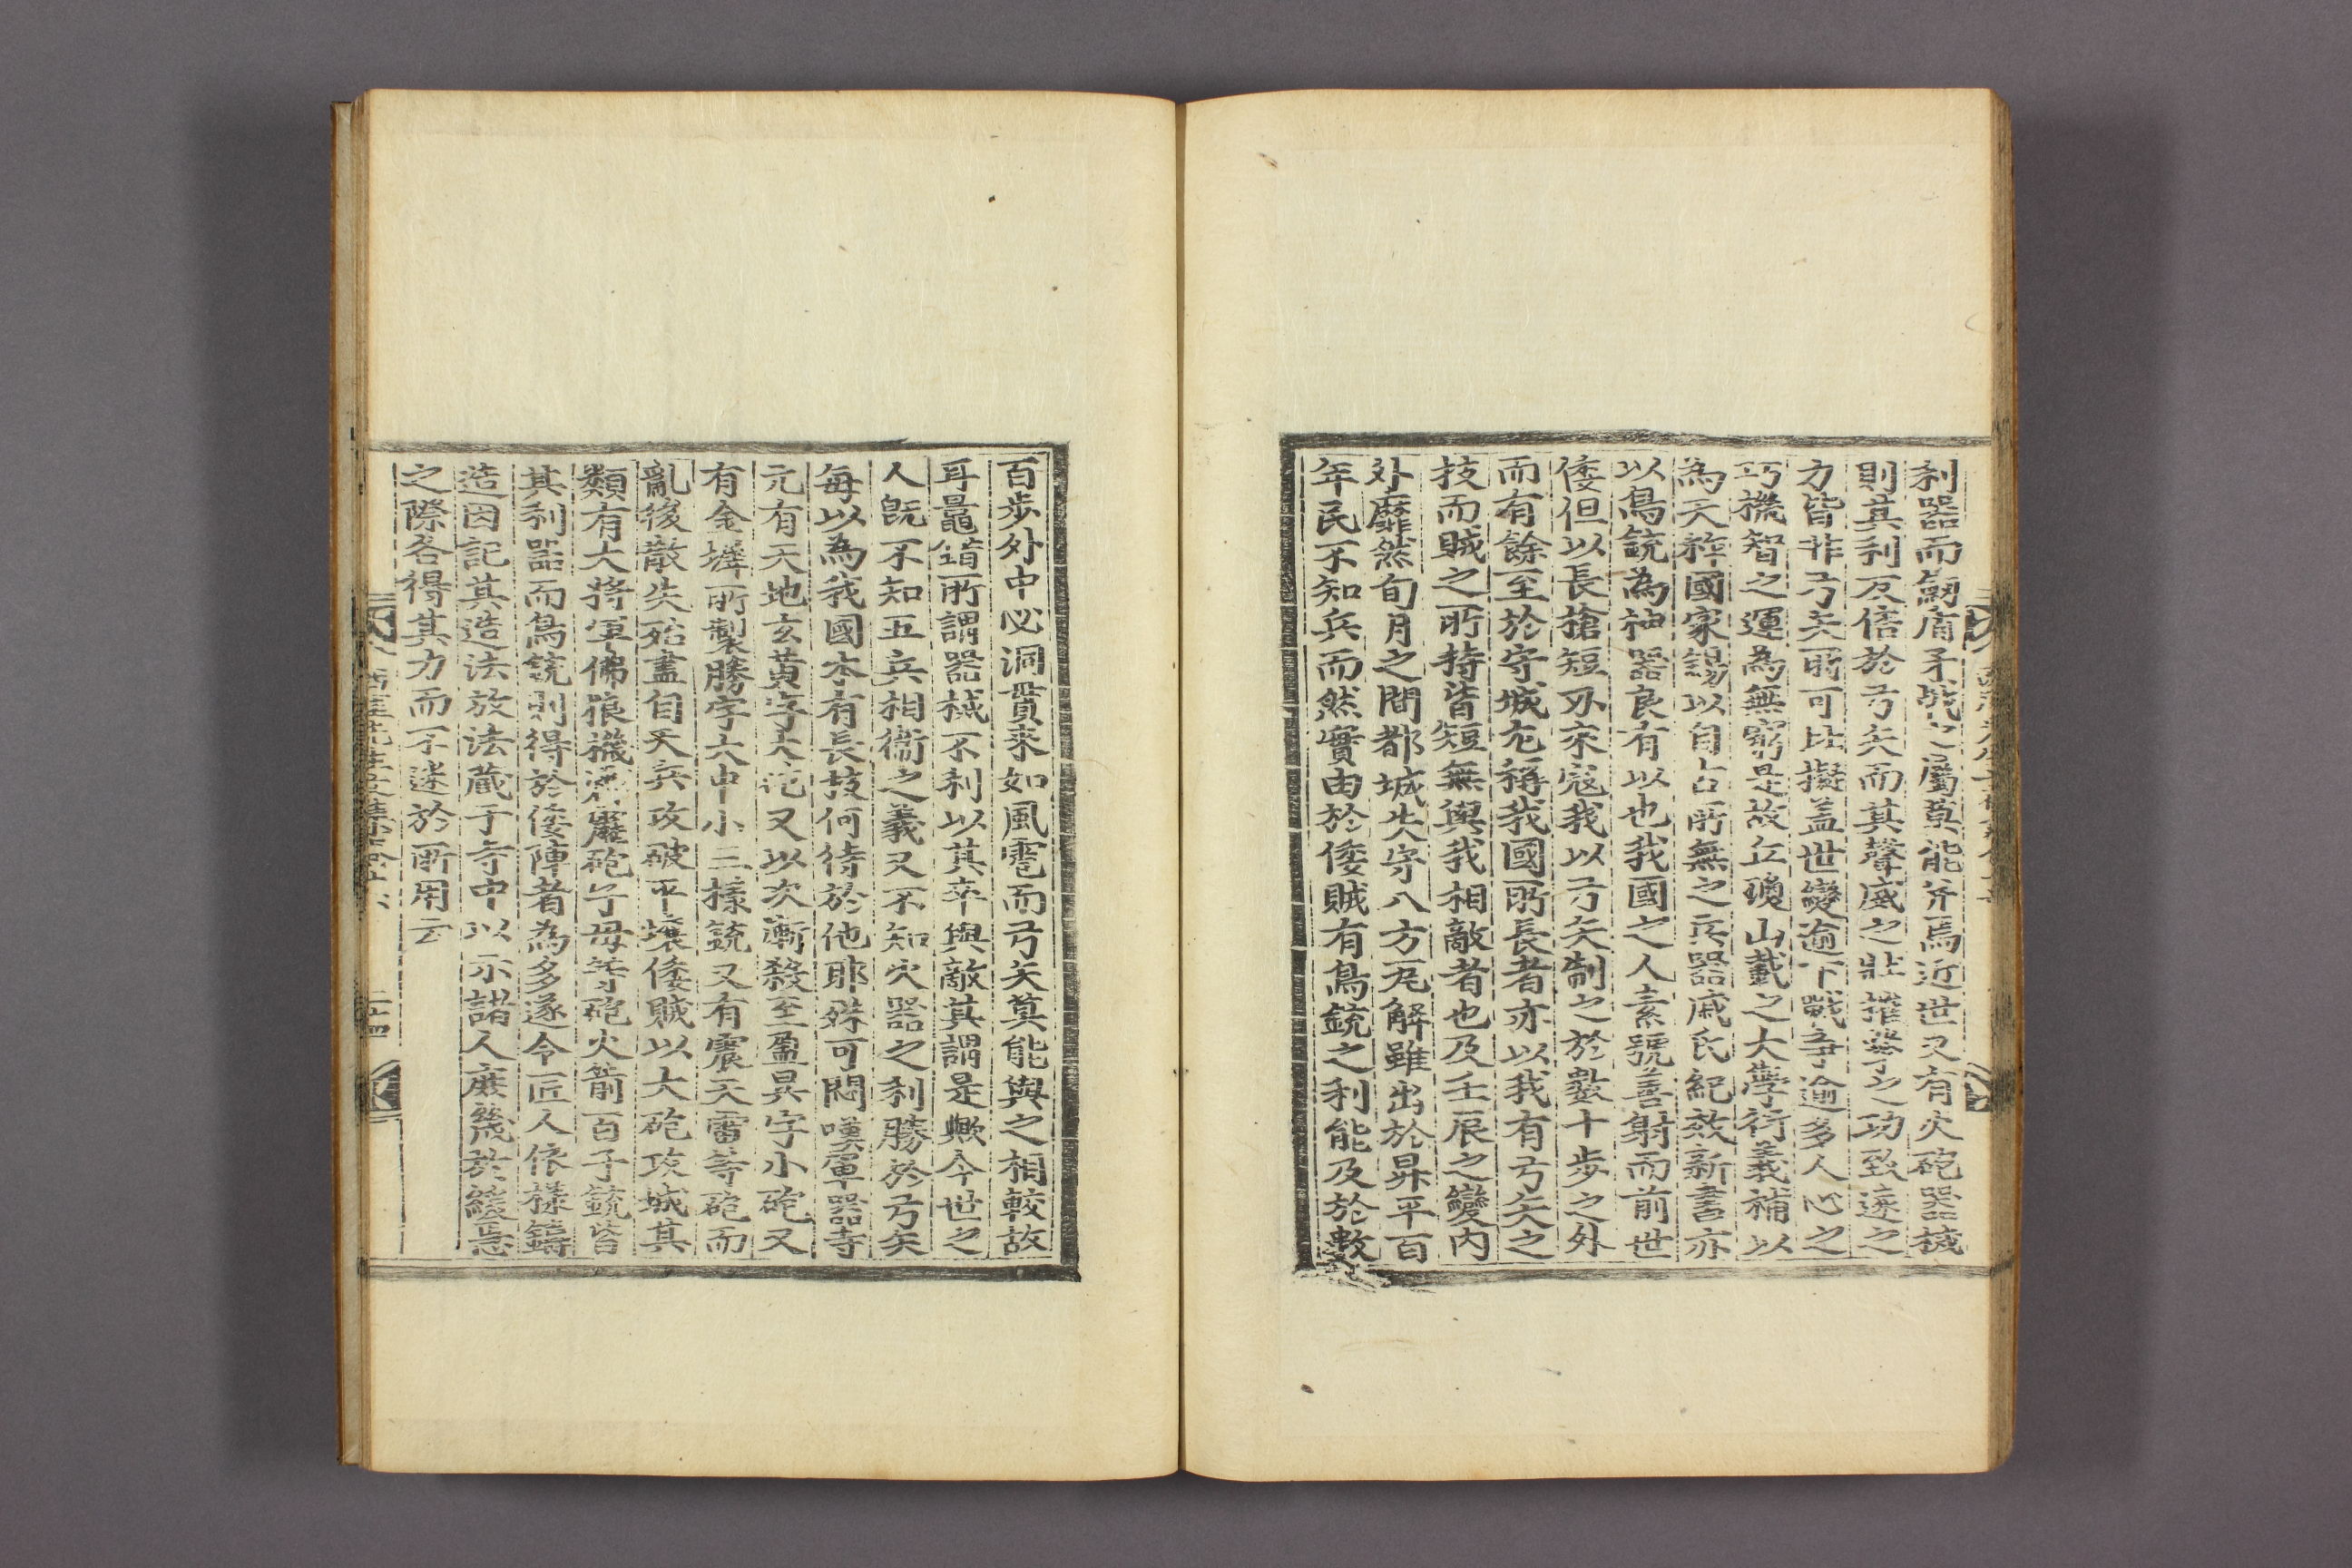 利器而劒盾矛戟之屬莫能齐焉近世又有火砲器械
則其利百倍於弓矢而其聲威之壯摧擊之功致遠之
力皆非弓矢所可比擬盖世變逾下戰爭逾多人心之
巧機智之運為無窮是故丘瓊山載之大學衍義補以
為天祚國家錫以自古所無之兵器戚氏紀效新書亦
以鳥銃為神器良有以也我國之人素號善射而前世
倭但以長槍短刃來寇我以弓矢制之於數十步之外
而有餘至於守城尤稱我國所長者亦以我有弓矢之
技而賊之所持皆短無與我相敵者也及壬辰之變內
外靡然旬月之間都城失守八方瓦解雖出於昇平百
年民不知兵而然實由於倭賊有鳥銃之利能及於數
百步外中必洞貫來如風雹而弓矢莫能與之相較故
耳鼂錯所謂器械不利以其卒與敵其謂是歟今世之
人既不知五兵相衛之義又不知火器之利勝於弓矢
每以為我國本有長技何待於他耶殊可悶嘆軍器寺
元有天地玄黃字大砲又以次漸殺至盈昃字小砲又
有金墀所製勝字大中小三㨾銃又有震天雷等砲而
亂後散失殆盡自天兵攻破平壤倭賊以大砲攻城其
類有大將軍佛狼機霹靂砲子母等砲火箭百子銃皆
其利器而鳥銃則得於倭陣者為多遂令匠人依㨾鑄
造因記其造法放法藏于寺中以示諸人庶幾於緩急
之際各得其力而不迷於所用云
西厓先生文集卷十六
二十四